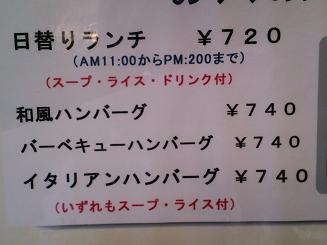 日替りランチ ￥７２０
(AM11:00からPM:200まで)
(スープ・ライス・ドリンク付)
和風ハンバーグ ￥７４０
バーベキューハンバーグ ￥７４０
イタリアンハンバーグ ￥７４０
(いずれもスープ・ライス付)